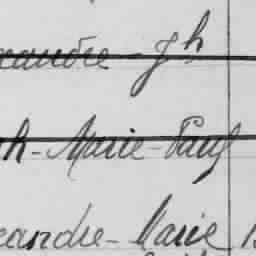 xandre - Jh
ph - Marie - Paul
xandre - Marie